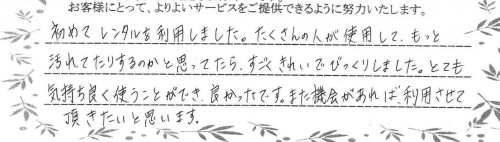 お客様にとって、よりよいサービスをご提供できるように努力いたします。
初めてレンタルを利用しました。たくさんの人が使用して、もっと
汚れてたりするのかと思ってたら、すごくきれいでびっくりしました。とても
気持ち良く使うことができ、良かったです。また機会があれば、利用させて
頂きたいと思います。